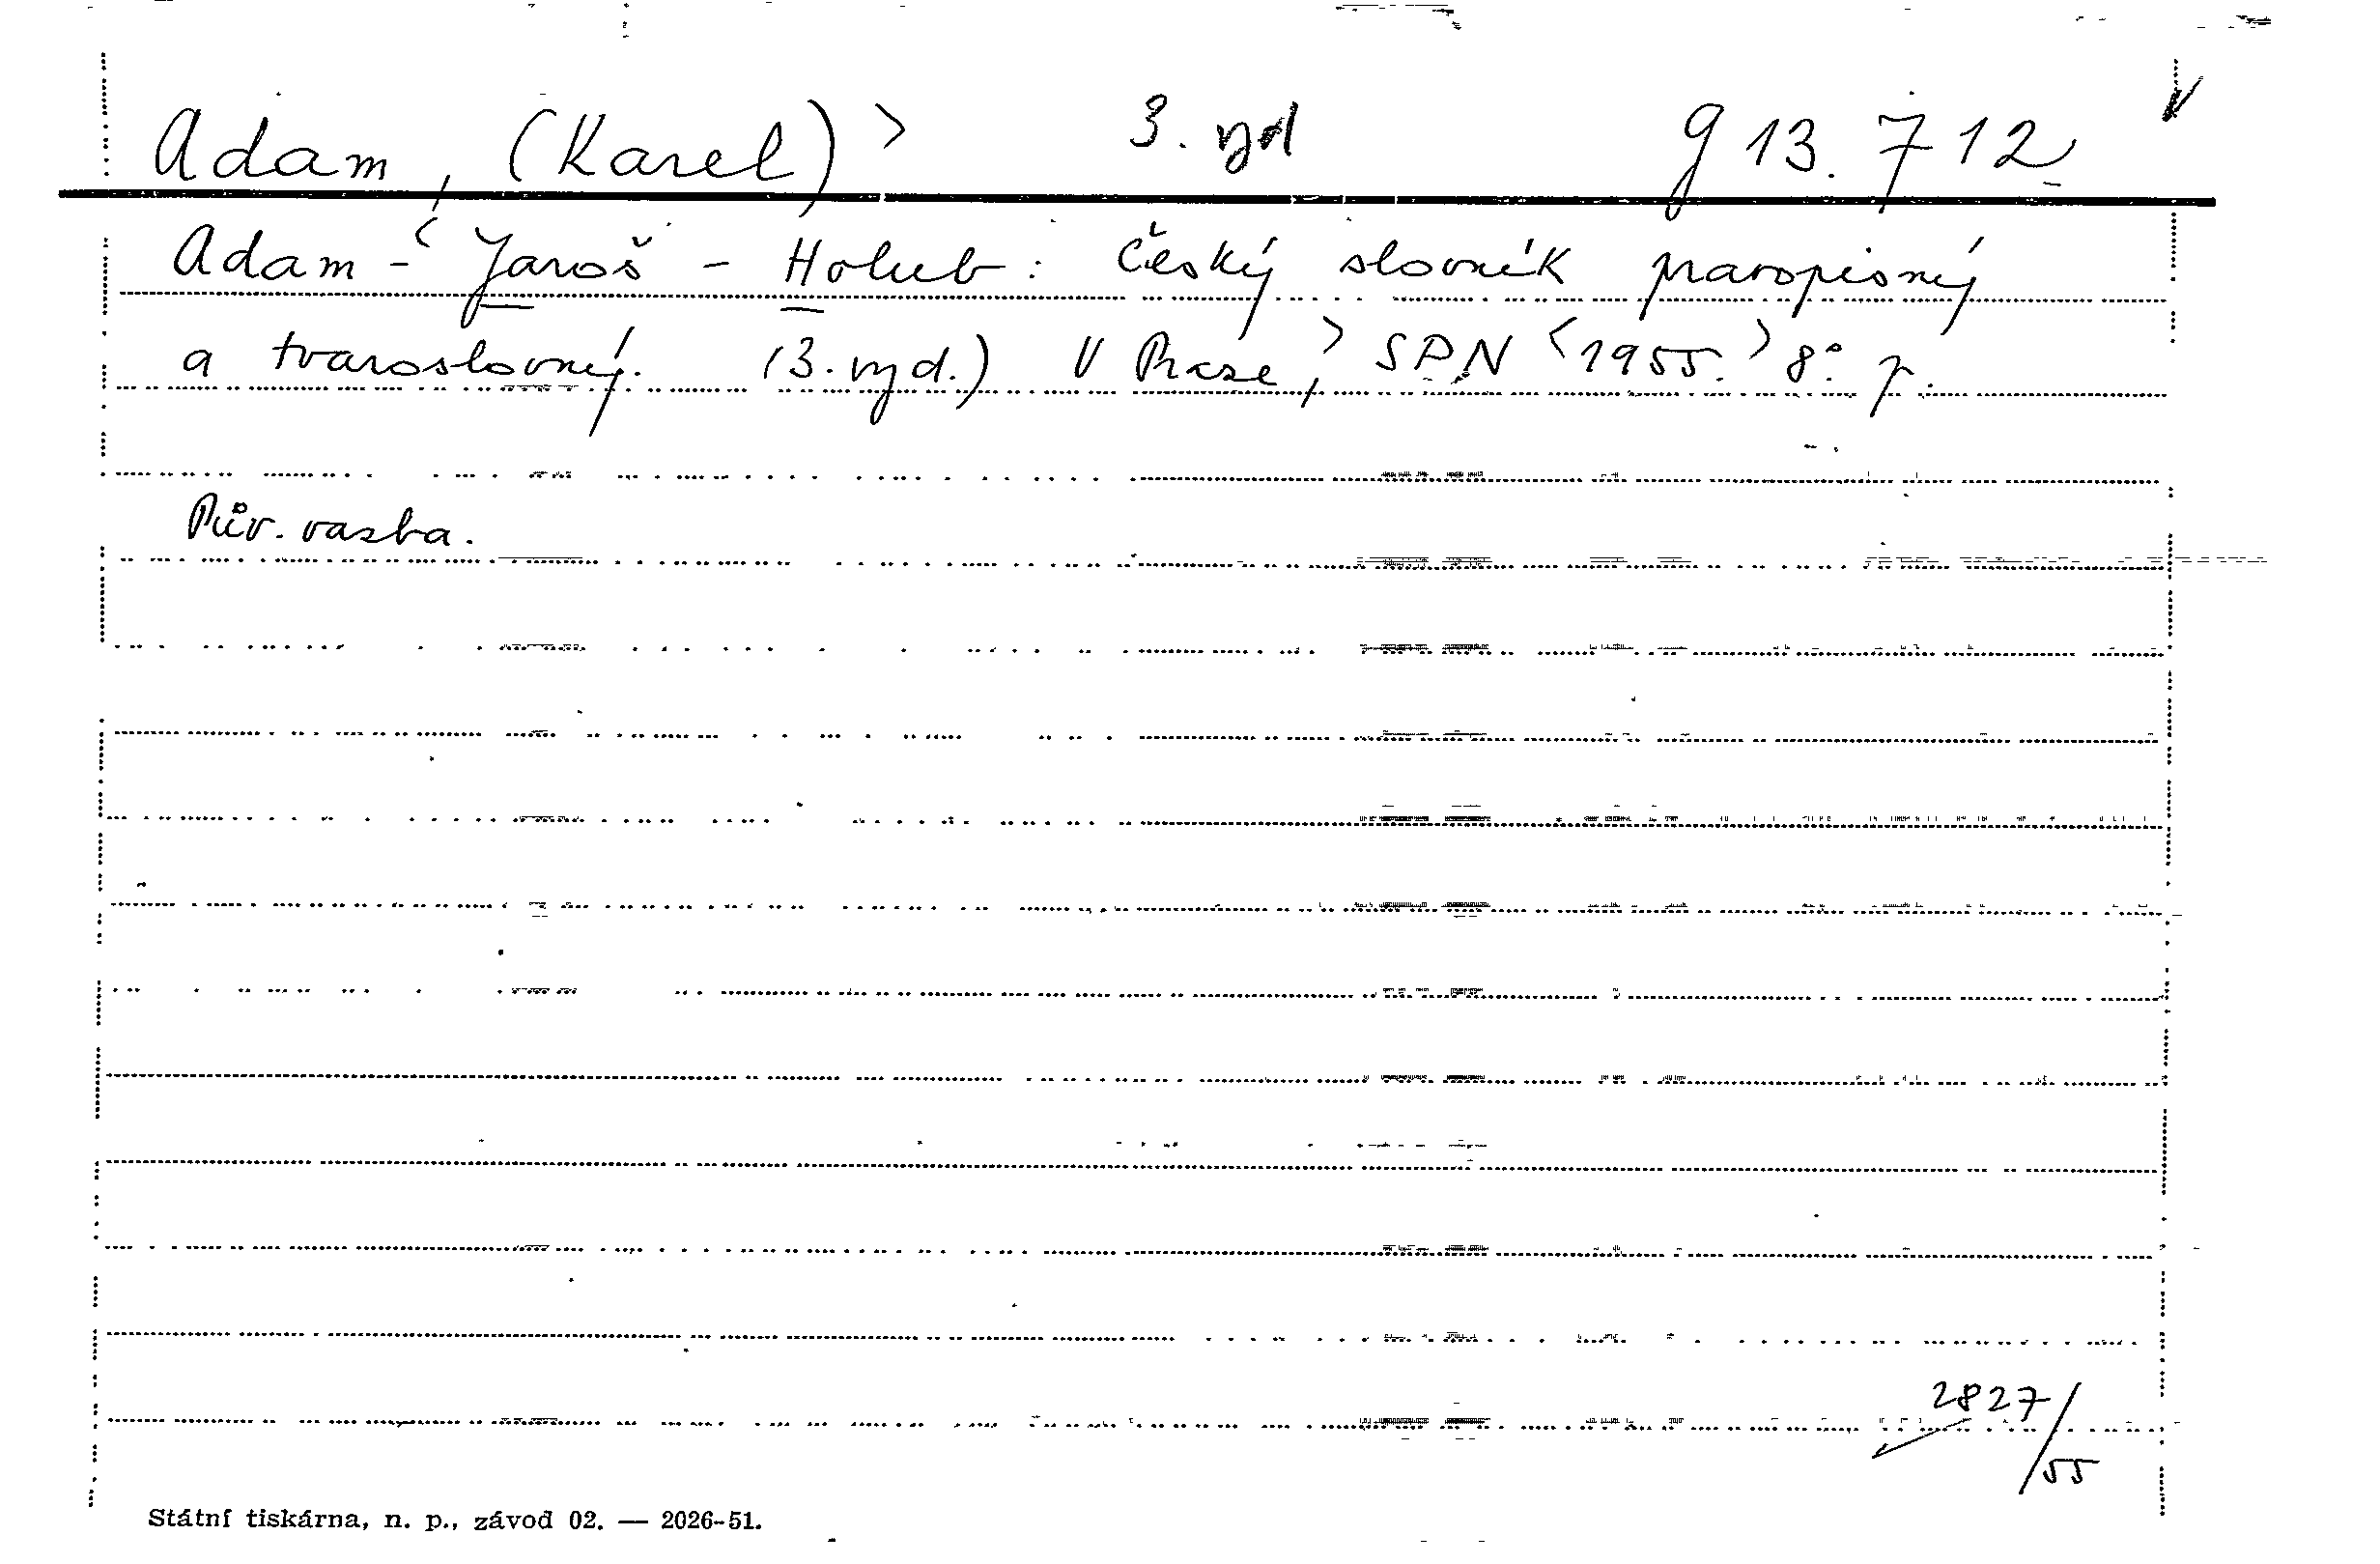 Adam, (Karel)> 3. vyd g 13.712
Adam -< Jaroš - Holub: Český slovník pravopisný
a tvaroslovný. (3. vyd.) V Praze,> SPN <1955.> 8° p.
Pův. vazba.
2827/55
Státní tiskárna, n. p., závod 02. — 2026-51.